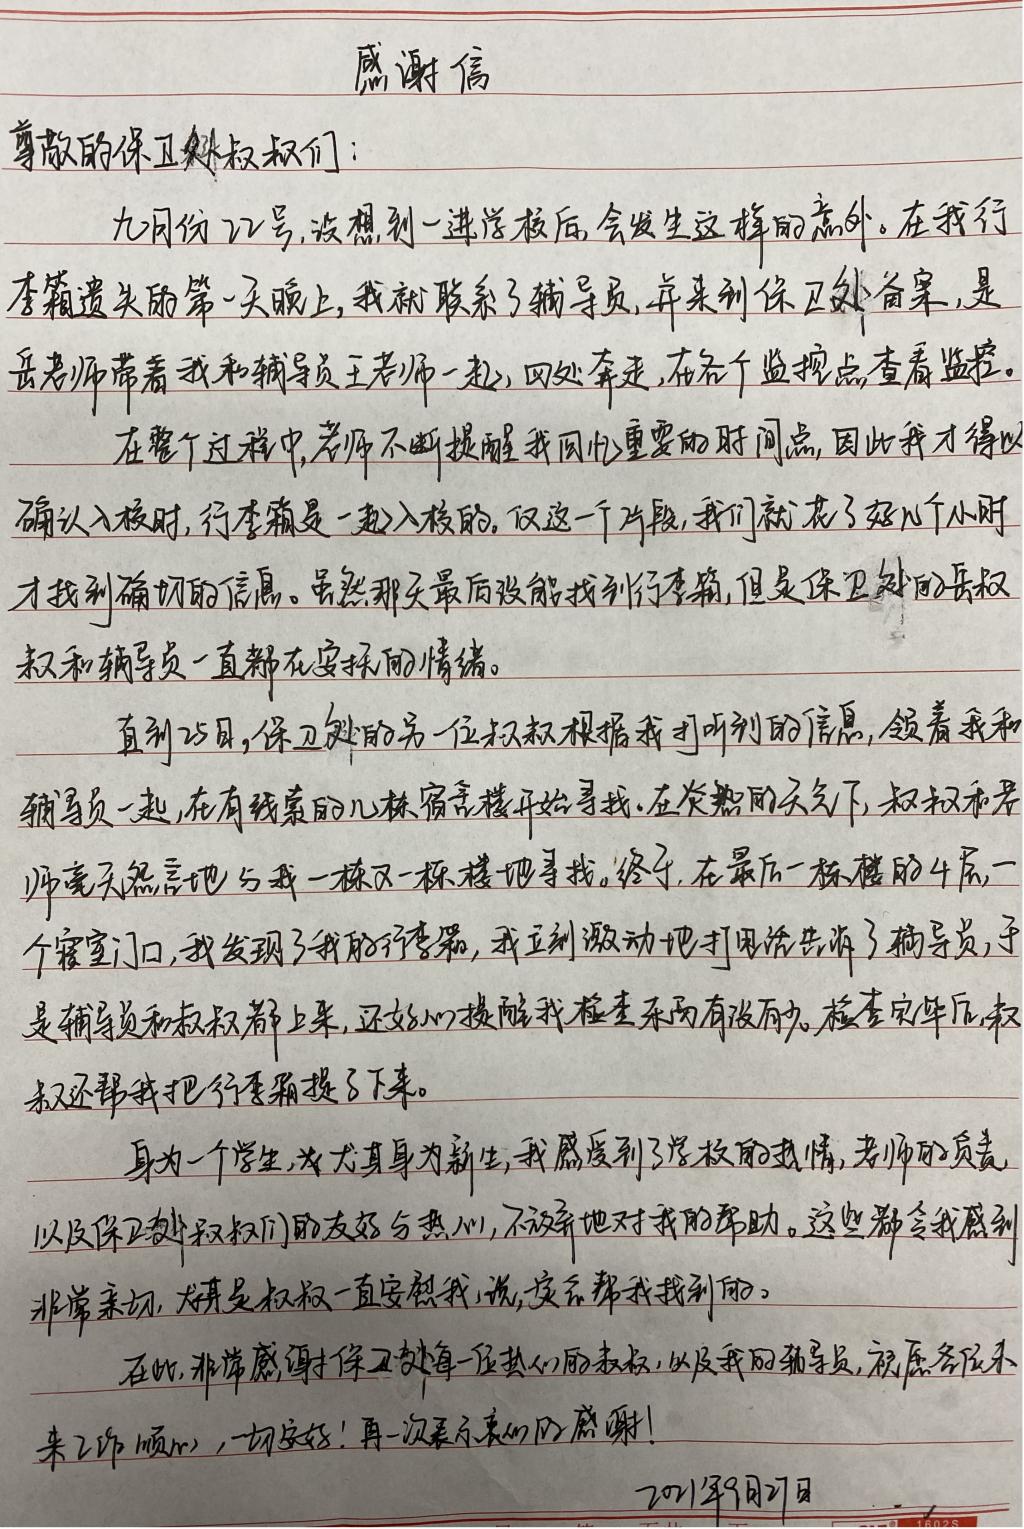 感谢信
尊敬的保卫处叔叔们：
九月份22号，没想到一进学校后，会发生这样的意外。在我行
李箱遗失的第一天晚上，我就联系了辅导员，并来到保卫处备案，是
岳老师带着我和辅导员王老师一起，四处奔走，在各个监控点查看监控。
在整个过程中，老师不断提醒我回忆重要的时间点，因此我才得以
确认入校时，行李箱是一起入校的。仅这一个片段，我们就花了好几个小时
才找到确切的信息。虽然那天最后没能找到行李箱，但是保卫处的岳叔
叔和辅导员一直都在安抚的情绪。
直到25日，保卫处的另一位叔叔根据我打听到的信息，领着我和
辅导员一起，在有线索的几栋宿舍楼开始寻找。在炎热的天气下，叔叔和老
师毫无怨言地与我一栋又一栋楼地寻找。终于，在最后一栋楼的4层，一
个寝室门口，我发现了我的行李箱，我立刻激动地打电话告诉了辅导员，于
是辅导员和叔叔都上来，还好心提醒我检查东西有没有少。检查完毕后，叔
叔还帮我把行李箱提了下来。
身为一个学生，尤其身为新生，我感受到了学校的热情，老师的负责，
以及保卫处叔叔们的友好与热心，不放弃地对我的帮助。这些都令我感到
非常亲切，尤其是叔叔一直安慰我，说，定会帮我找到的。
在此，非常感谢保卫处每一位热心的叔叔，以及我的辅导员，祝愿各位未
来工作顺心，一切安好！再一次表示衷心的感谢！
2021年9月27日
1602S